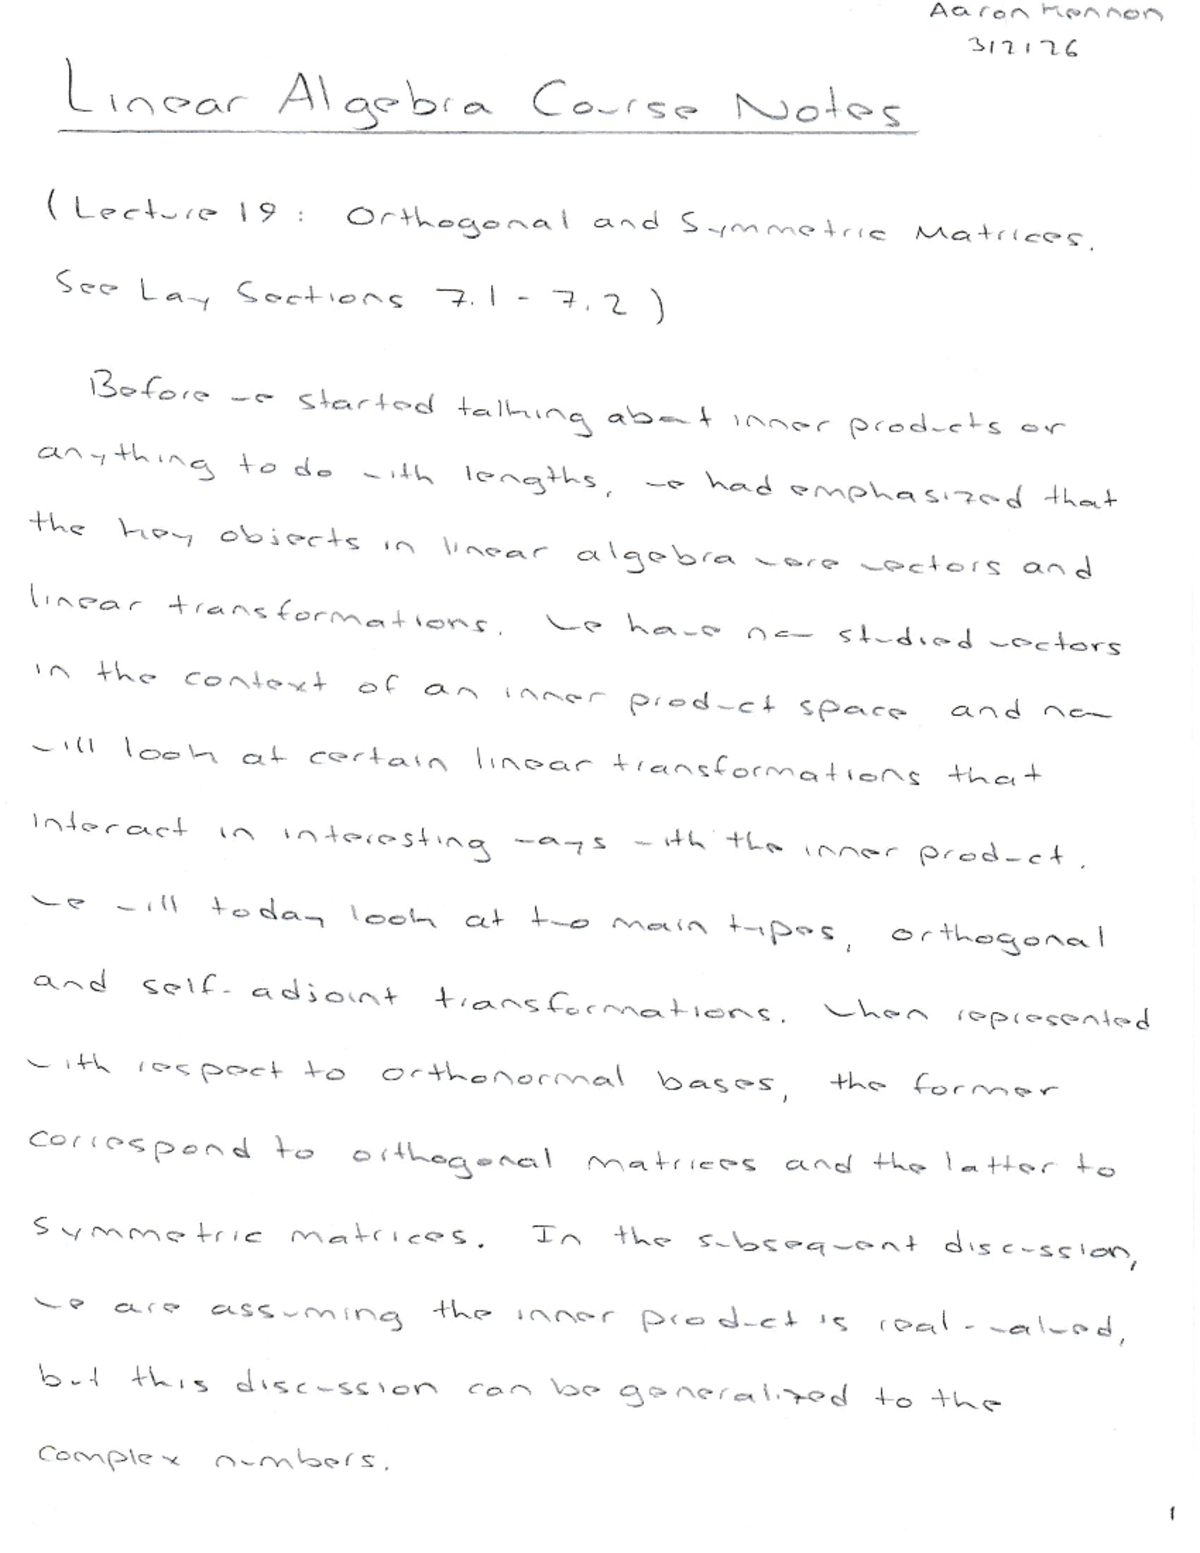 Aaron Kennon
3/2/26
Linear Algebra Course Notes
(Lecture 19: Orthogonal and Symmetric Matrices.
See Lay Sections 7.1 - 7.2)
Before we started talking about inner products or
anything to do with lengths, we had emphasized that
the key objects in linear algebra were vectors and
linear transformations. We have now studied vectors
in the context of an inner product space and now
will look at certain linear transformations that
interact in interesting ways with the inner product.
We will today look at two main types, orthogonal
and self-adjoint transformations. When represented
with respect to orthonormal bases, the former
correspond to orthogonal matrices and the latter to
symmetric matrices. In the subsequent discussion,
we are assuming the inner product is real-valued,
but this discussion can be generalized to the
complex numbers.
1